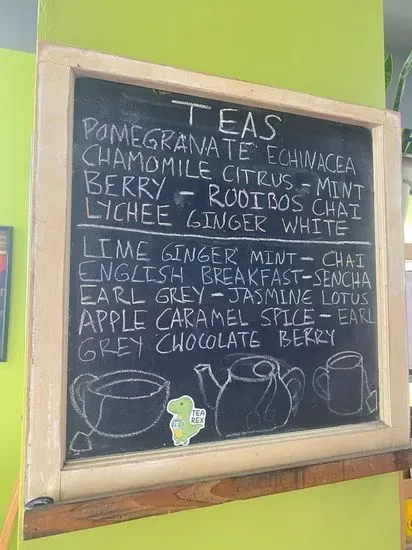 TEAS
POMEGRANATE ECHINACEA
CHAMOMILE CITRUS - MINT
BERRY - ROOIBOS CHAI
LYCHEE GINGER WHITE
LIME GINGER MINT - CHAI
ENGLISH BREAKFAST - SENCHA
EARL GREY - JASMINE LOTUS
APPLE CARAMEL SPICE - EARL
GREY CHOCOLATE BERRY
TEA
REX